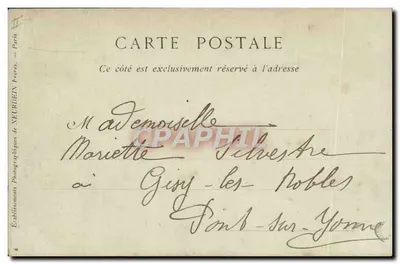 CARTE POSTALE
Ce côté est exclusivement réservé à l'adresse
Mademoiselle
Mariette Silvestre
à Gisy-les-Nobles
Pont-sur-Yonne
CRAPHTI
Etablissements Photographiques de NEURDEIN Frères. — Paris